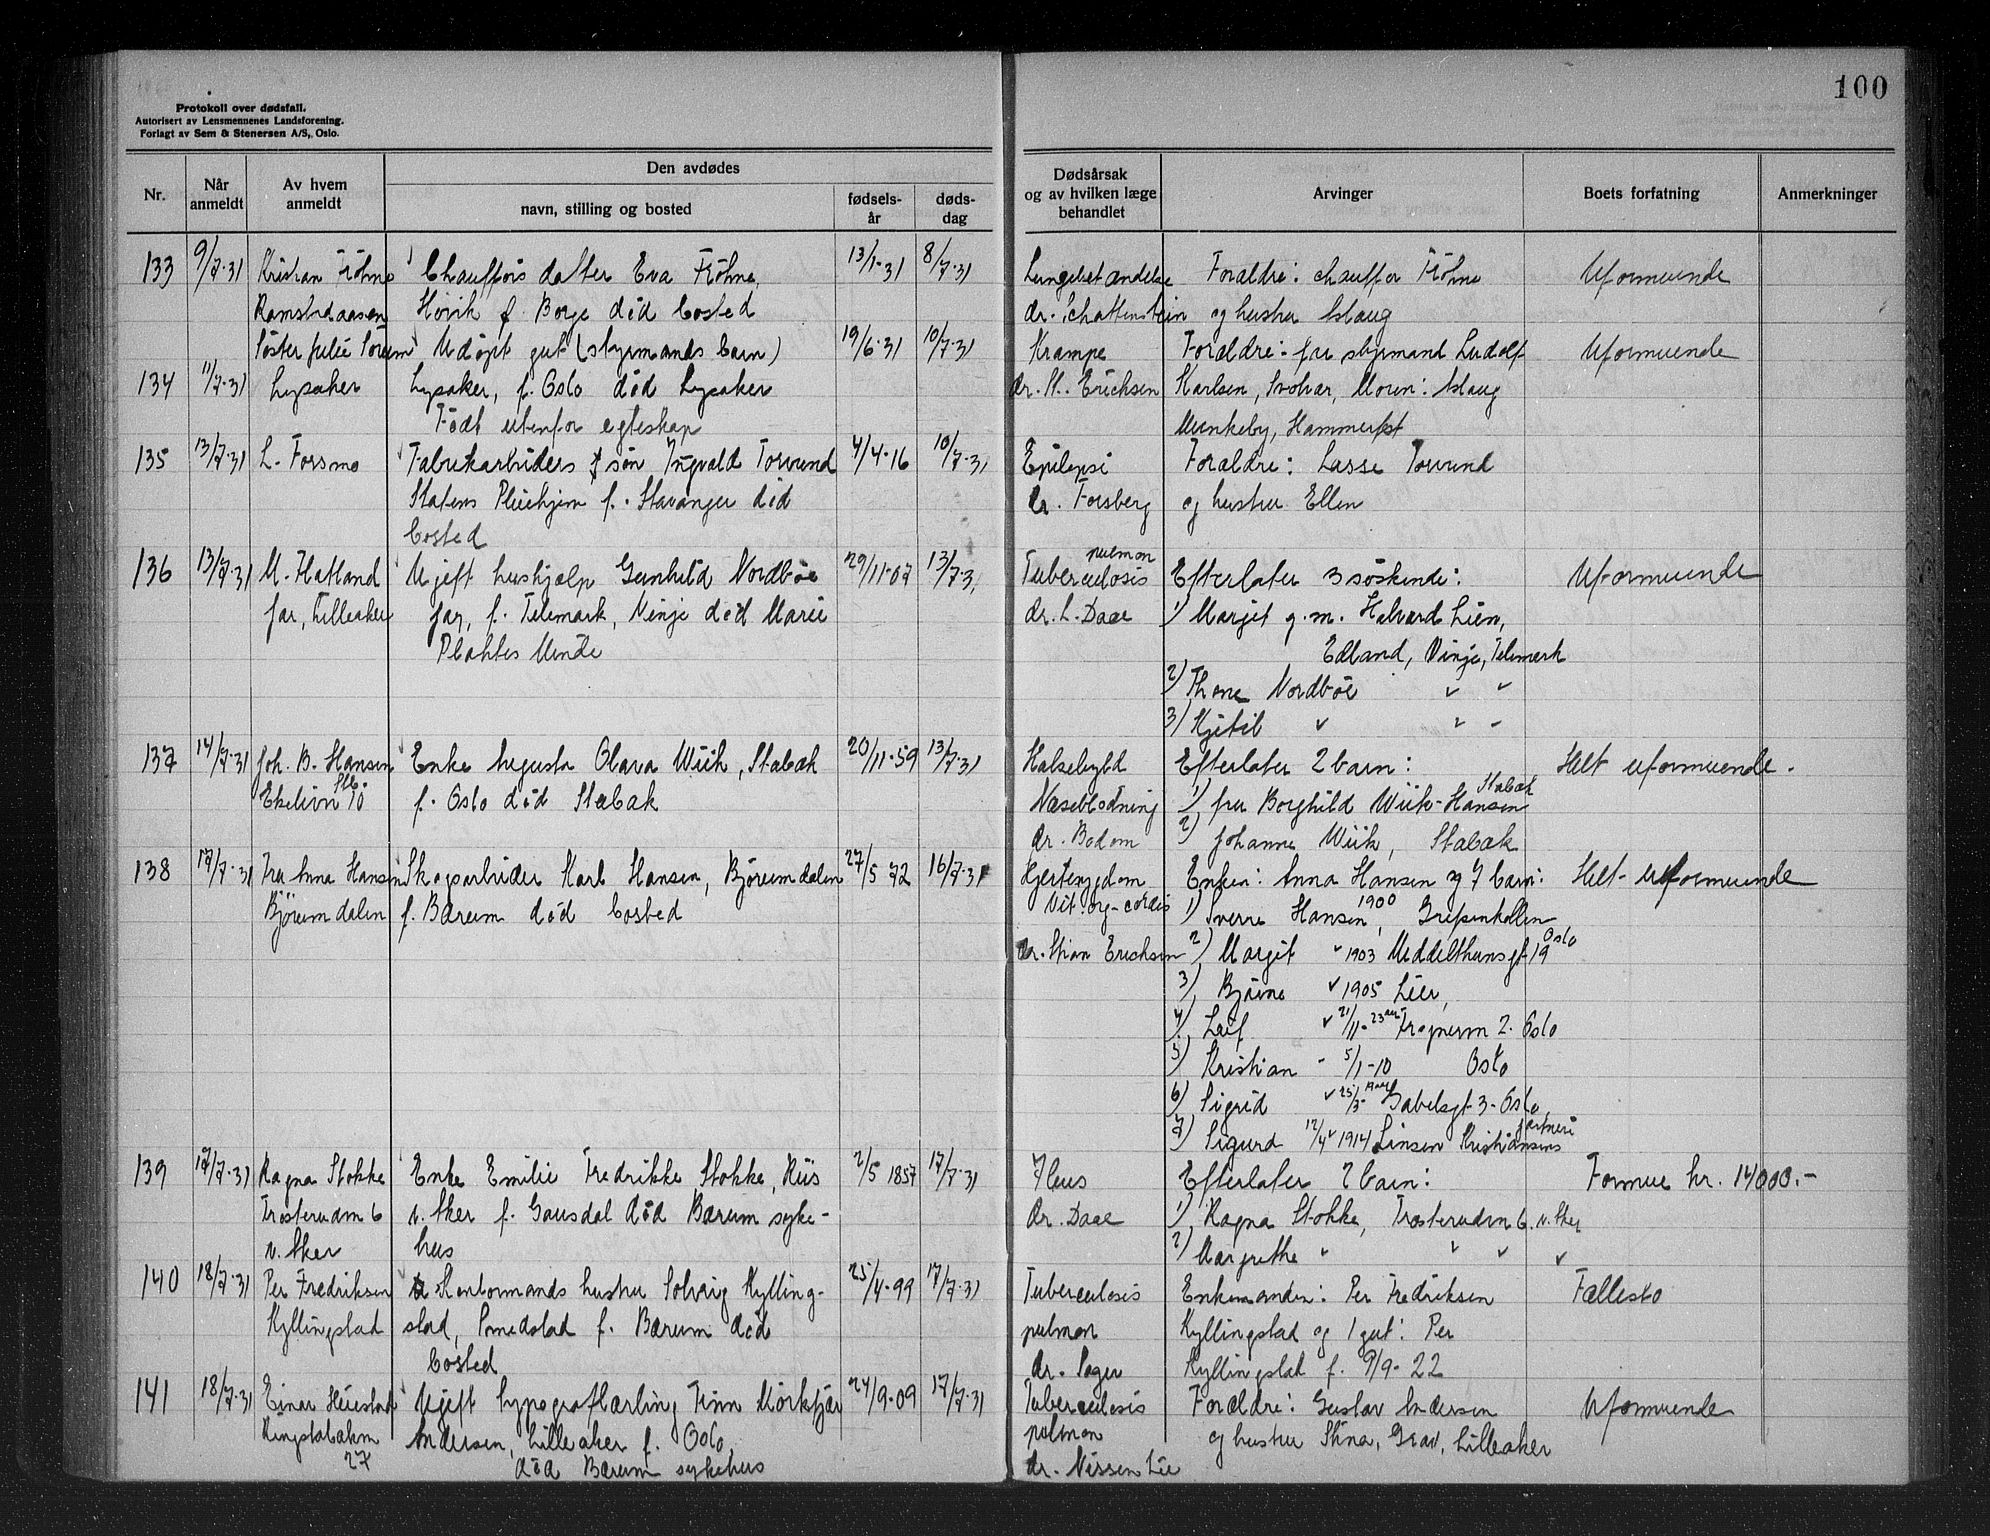 100
Protokoll over dødsfall.
Autorisert av Lensmennenes Landsforening.
Forlagt av Sem & Stenersen A/S, Oslo.
Nr.
Når anmeldt
Av hvem anmeldt
Den avdødes
navn, stilling og bosted
fødsels-år
døds-dag
Dødsårsak og av hvilken læge behandlet
Arvinger
Boets forfatning
Anmerkninger
133 9/7-31 Kristian Fröhne Chaufførs datter Eva Fröhne, 13/1-31 8/7-31 Lungebetændelse Forældre: chauffør Fröhne Uformuende
Ramstadaasen Hövik f. Borge död bosted dr. Schattenstein og hustru Aslaug
Söster Julie Sörum Udöpt gut (styrmands barn) 19/6-31 10/7-31 Krampe Forældre: far styrmand Ludolf Uformuende
134 11/7-31 Lysaker Lysaker, f. Oslo död Lysaker dr. St. Erichsen Karlsen, Svolvær, Moren: Aslaug
Födt utenfor egteskap Munkeby, Hammerfest
135 13/7-31 L. Forsmo Fabrikarbeiders sön Ingvald Torvund 4/4-16 10/7-31 Epilepsi Forældre: Lasse Torvund
Statens Pleiehjem f. Stavanger död dr. Forsberg og hustru Ellen
bosted
136 13/7-31 M. Hatland Ugift hushjælp Gunhild Nordböe 29/11-07 13/7-31 Tuberculosis pulmon Efterlater 3 söskende: Uformuende
Jar, Lilleaker Jar, f. Telemark, Vinje död Marie dr. L. Daae 1) Margit g.m. Halvard Lien,
Plahtes Minde Edland, Vinje, Telemark
2) Thone Nordböe " "
3) Kjetil " " "
137 14/7-31 Joh. B. Hansen Enke Augusta Olava Wiik, Stabæk 20/11-59 13/7-31 Halsebyld Efterlater 2 barn: Helt uformuende.
Ekelivn 10 Stb. f. Oslo död Stabæk Næseblödning 1) fru Borghild Wiik-Hansen Stabæk
dr. Bodom 2) Johanne Wiik, Stabæk
138 17/7-31 Fru Anna Hansen Skogsarbeider Karl Hansen, Bjørumdalen 27/5 72 16/7-31 Hjertesygdom Enken: Anna Hansen og 7 barn: Helt uformuende
Bjørumdalen f. Bærum död bosted Vit. org-cordis 1) Sverre Hansen 1900, Grefsenkollen
dr. Stian Erichsen 2) Margit " 1903 Middelthunsgt. 19 Oslo
3) Bjarne " 1905 Lier,
4) Leif " 21/11-23 aar Frognervn 2. Oslo
5) Kristian " 5/1-10 Oslo
6) Sigrid " 25/3- Gabelsgt 3-Oslo,
7) Sigurd 12/4 " 1914 Linsen Kristiansens gartneri
139 17/7-31 Ragna Stokke Enke Emilie Fredrikke Stokke, Riis 2/5 1857 17/7-31 Ileus Efterlater 2 barn: Formue kr. 14000.-
Trosterudvn 6 v. Aker f. Gausdal död Bærum syke- dr. Daae 1) Ragna Stokke, Trosterudvn 6. v. Aker
v. Aker hus 2) Margrethe " " " "
140 18/7-31 Per Fredriksen Kontormands hustru Solveig Kylling- 25/4-99 17/7-31 Tuberculosis Enkemanden: Per Fredriksen Fællesbo
Kyllingstad stad, Smedstad f. Bærum död pulmon Kyllingstad og 1 gut: Per
bosted dr. Sager Kyllingstad f. 9/9-22
141 18/7-31 Einar Huustad Ugift typograflærling Finn Mörkfjær 24/9-09 17/7-31 Tuberculosis Forældre: Gustav Andersen Uformuende
Ringstabækvn Andersen, Lilleaker f. Oslo, pulmon og hustru Stina, Grav, Lilleaker
27 död Bærum sykehus dr. Nissen Lie